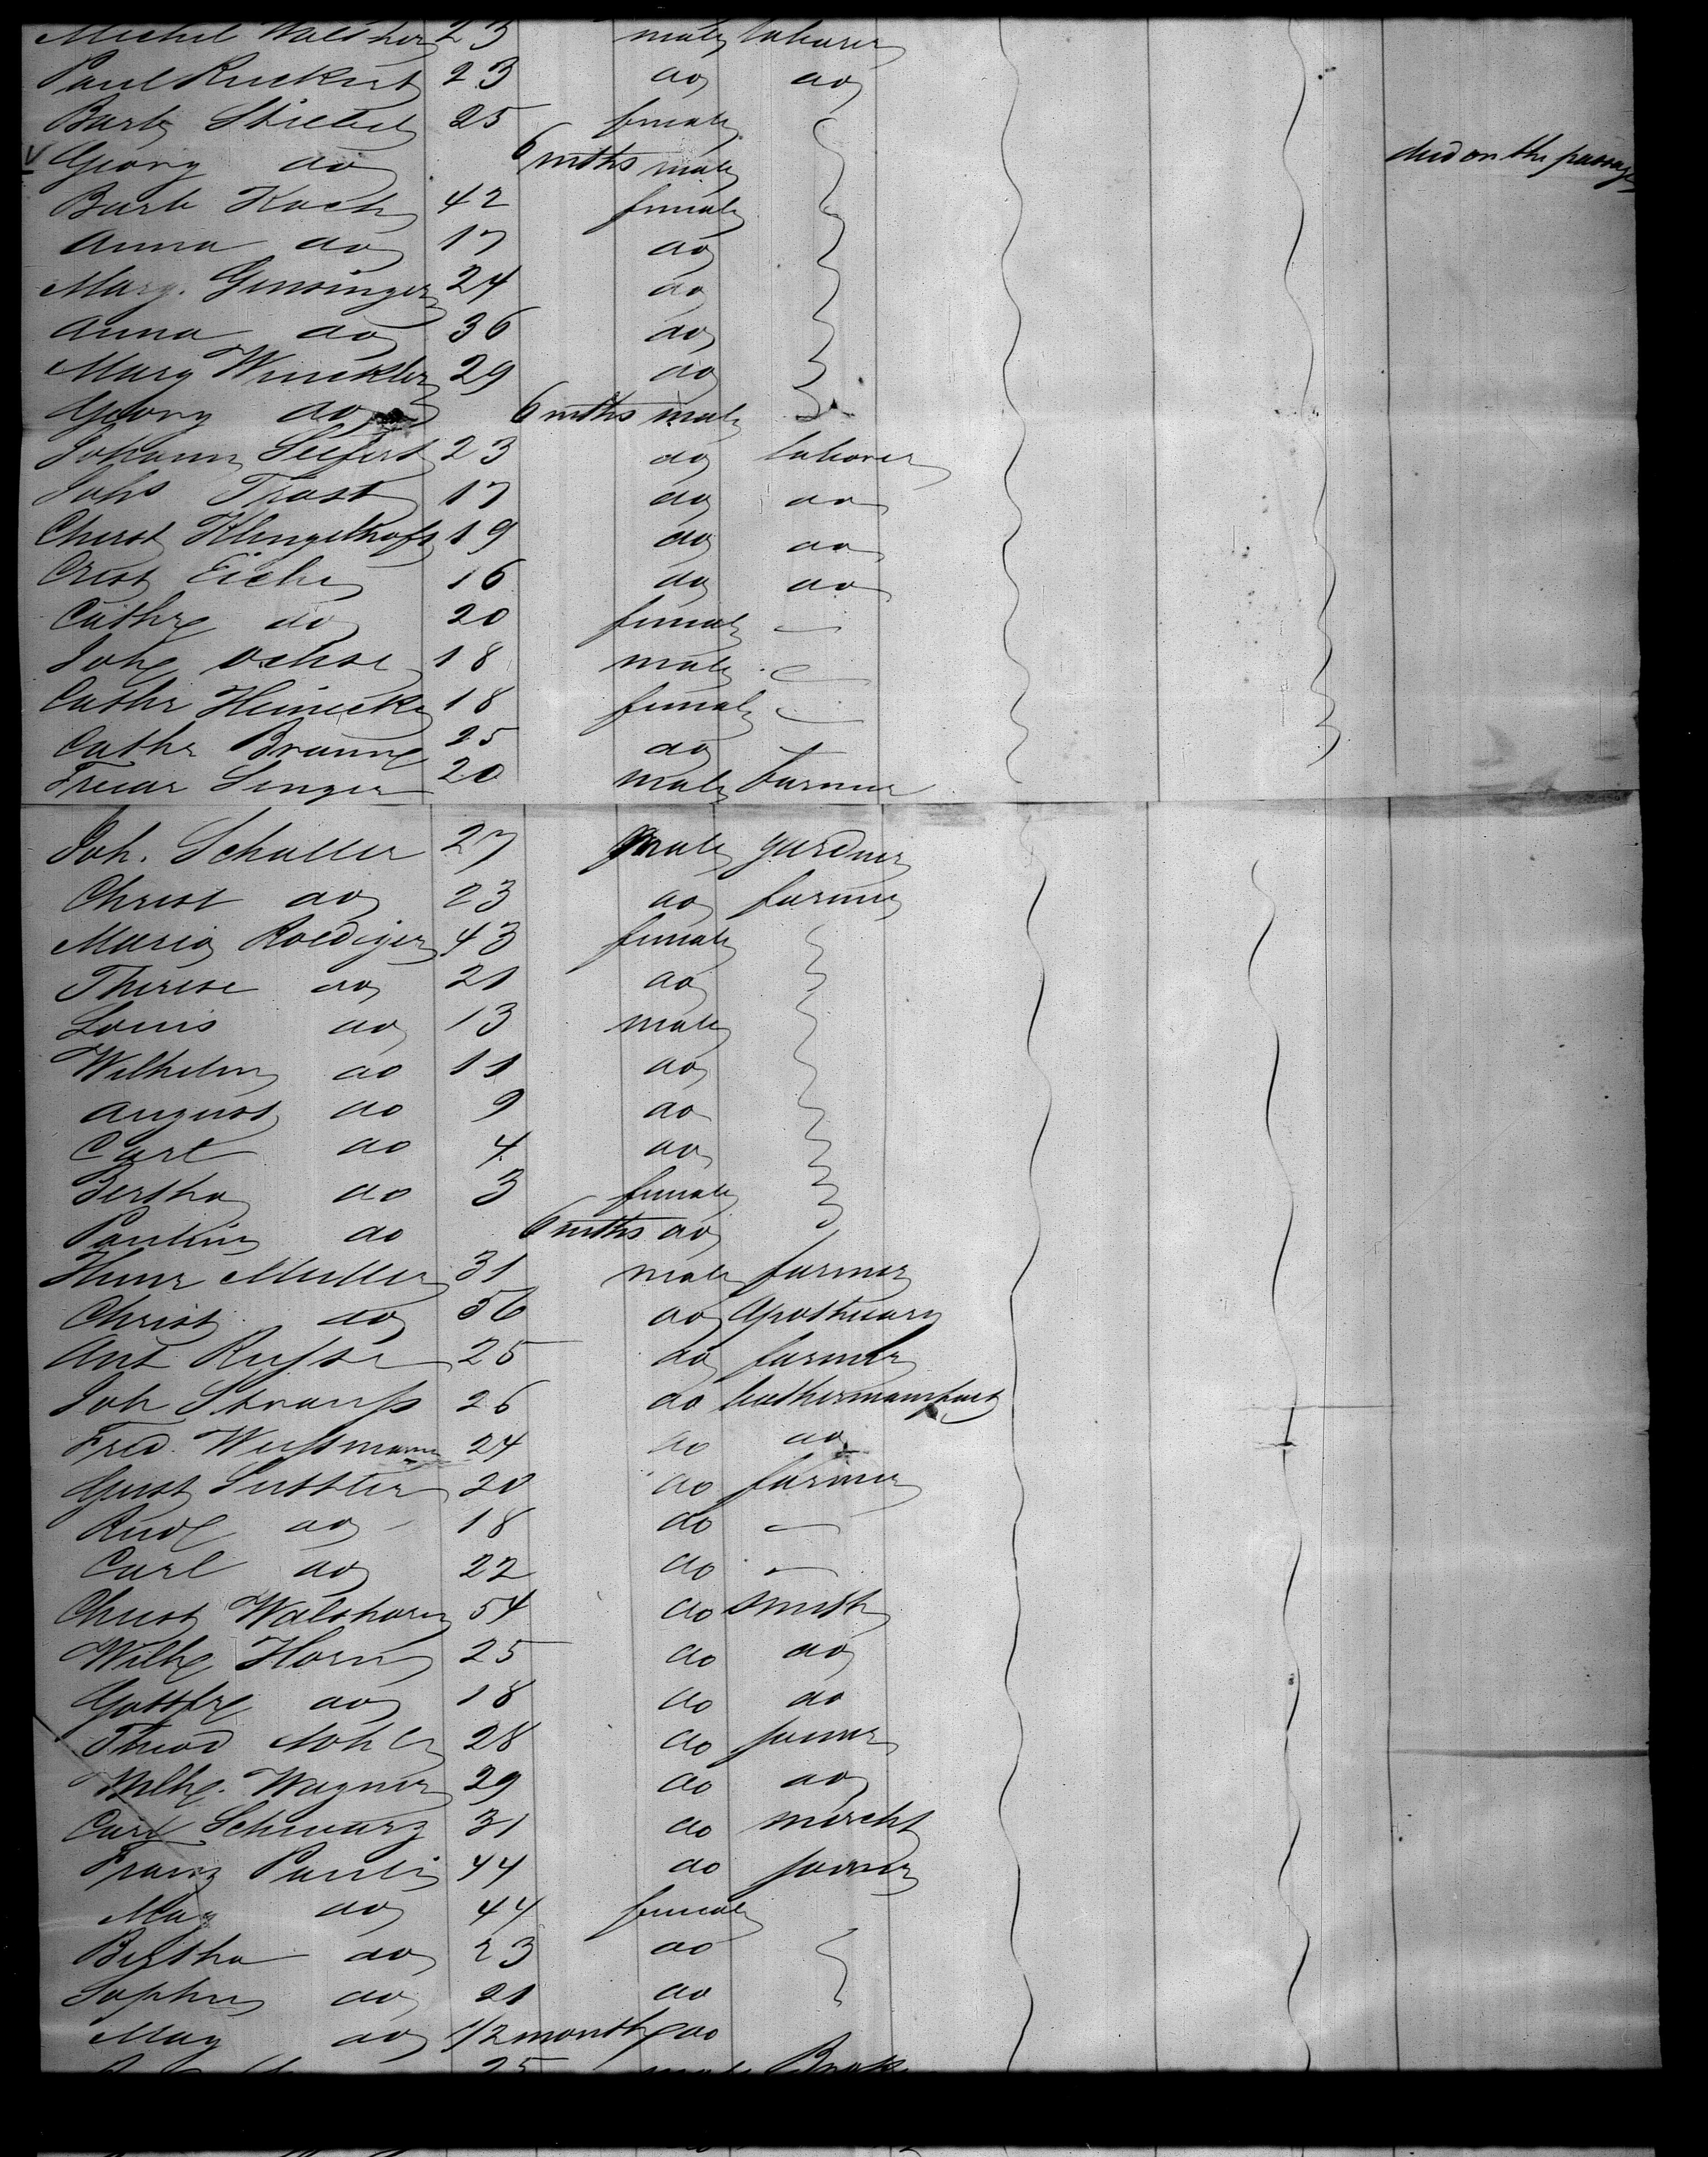 Michel Walther 23 male laborer
Paul Ruckert 23 do do
Barb Stiebel 25 female
V Georg do 6 mths male died on the passage
Barb Koch 42 female
Anna do 17 do
Marg. Gensinger 24 do
Anna do 36 do
Marg Winckler 29 do
Georg do 6 mths male
Johann Seifert 23 do laborer
Johs Trost 17 do do
Christ Klingelhoft 19 do do
Crist Eiche 16 do do
Cathr do 20 female
Joh Ochse 18 male
Cathr Heinecke 18 female
Cathr Braun 25 do
Friedr Senger 20 male farmer
Joh. Schuller 27 male gardner
Christ do 23 do farmer
Maria Roediger 43 female
Therese do 21 do
Louis do 13 male
Wilhelm do 11 do
August do 9 do
Carl do 4 do
Bertha do 3 female
Pauline do 6 mths do
Heinr Muller 31 male farmer
Christ do 56 do Apothecary
Ant 25 do farmer
Joh Strauß 26 do
Fred. Weißmann 24 do do
Gust Sattler 20 do farmer
Rud do 18 do
Carl do 22 do
Christ 54 do smith
Wilh Horn 25 do do
Gottfr do 18 do do
Theod 28 do joiner
Wilh. Wagner 29 do do
Carl Schwarz 31 do mercht
Franz Pauli 44 do joiner
May do 44 female
Bertha do 23 do
Sophie do 21 do
May do 1/2 month do
25 male